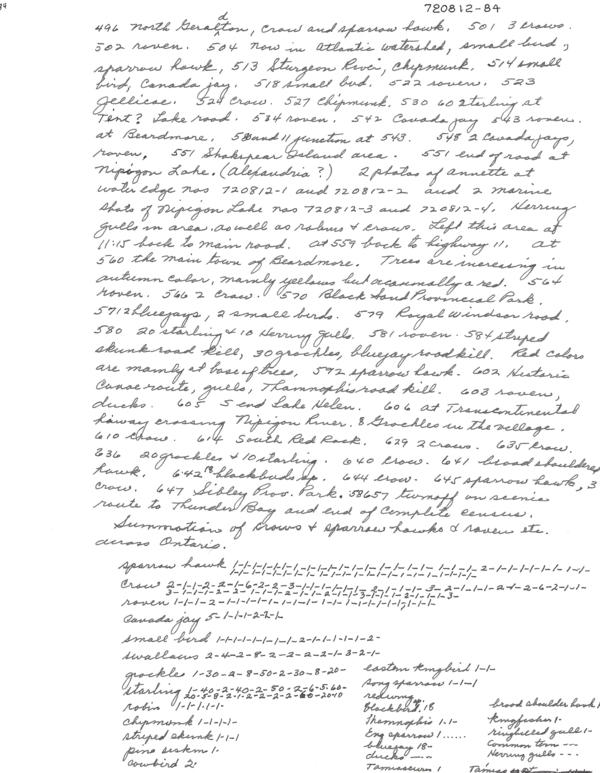 720812-84
496 North Geralton, crow and sparrow hawk. 501 3 crows.
d
502 raven. 504 now in Atlantic watershed, small bird,
sparrow hawk, 513 Sturgeon River, Chipmunk. 514 small
bird, Canada jay. 518 small bird. 522 raven. 523
Jellicoe. 524 crow. 527 Chipmunk. 530 60 starling at
Tent? Lake road. 534 raven. 542 Canada jay 543 raven.
at Beardmore. 580 and 11 junction at 543. 548 2 Canada jays,
raven, 551 Shakespear Island area. 551 end of road at
Nipigon Lake. (Alexandria?) 2 photos of Annette at
water edge nos 720812-1 and 720812-2 and 2 marine
shots of Nipigon Lake nos 720812-3 and 720812-4. Herring
gulls in area as well as robins & crows. Left this area at
11:15 back to main road. at 559 back to highway 11. at
560 the main town of Beardmore. Trees are increasing in
autumn color, mainly yellows but occasionally a red. 564
raven. 566 2 crow. 570 Black Sand Provincial Park.
571 2 bluejays, 2 small birds. 579 Royal Windsor road.
580 20 starling & 10 Herring gulls. 581 raven. 584 striped
skunk road kill, 30 grackles, bluejay road kill. Red colors
are mainly at base of trees, 592 sparrow hawk. 602 Historic
Canoe route, gulls, Thamnophis road kill. 603 raven,
ducks. 605 S end Lake Helen. 606 at Transcontinental
hiway crossing Nipigon River. 8 Grackles in the village.
610 crow. 614 South Red Rock. 629 2 crows. 635 crow.
636 20 grackles & 10 starling. 640 crow. 641 broad shouldered
hawk. 642 18 blackbirds sp. 644 crow. 645 sparrow hawk, 3
crow. 647 Sibley Prov. Park. 657 turnoff on scenic
route to Thunder Bay and end of complete census.
Summation of crows & sparrow hawks & raven etc.
across Ontario.
sparrow hawk
crow
raven
Canada jay 5-1-1-1-2-2-1
small bird
swallows 2-4-2-8-2-2-2-2-1-3-2-1-
grackle 1-30-2-8-50-2-30-8-20-
eastern kingbird 1-1-
starling 1-40-2-40-2-50-2-6-5-60-
song sparrow 1-1-1
robin 1-1-1-1-1-
redwing
blackbird. 18
broad shoulder hawk 1
chipmunk 1-1-1-1-
Thamnophis 1-1-
kingfisher 1-
striped skunk 1-1-1
Eng sparrow 1......
ringbilled gull 1-
pine siskin 1-
bluejay 18-
Common tern --
cowbird 2-
ducks --
Herring gulls ---
Tamiasciurus 1